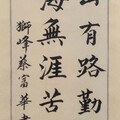 山有路勤
海無涯苦
獅峰蔡富華書